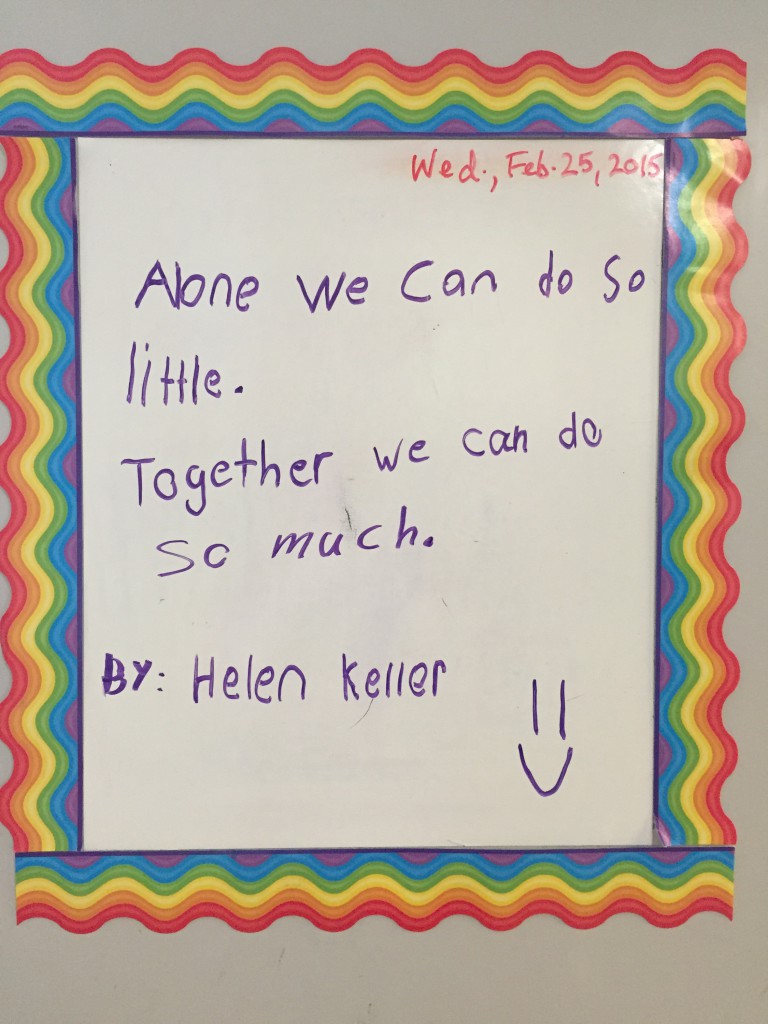 Wed., Feb. 25, 2015
Alone We Can do So
little.
Together we can do
So much.
BY: Helen Keller